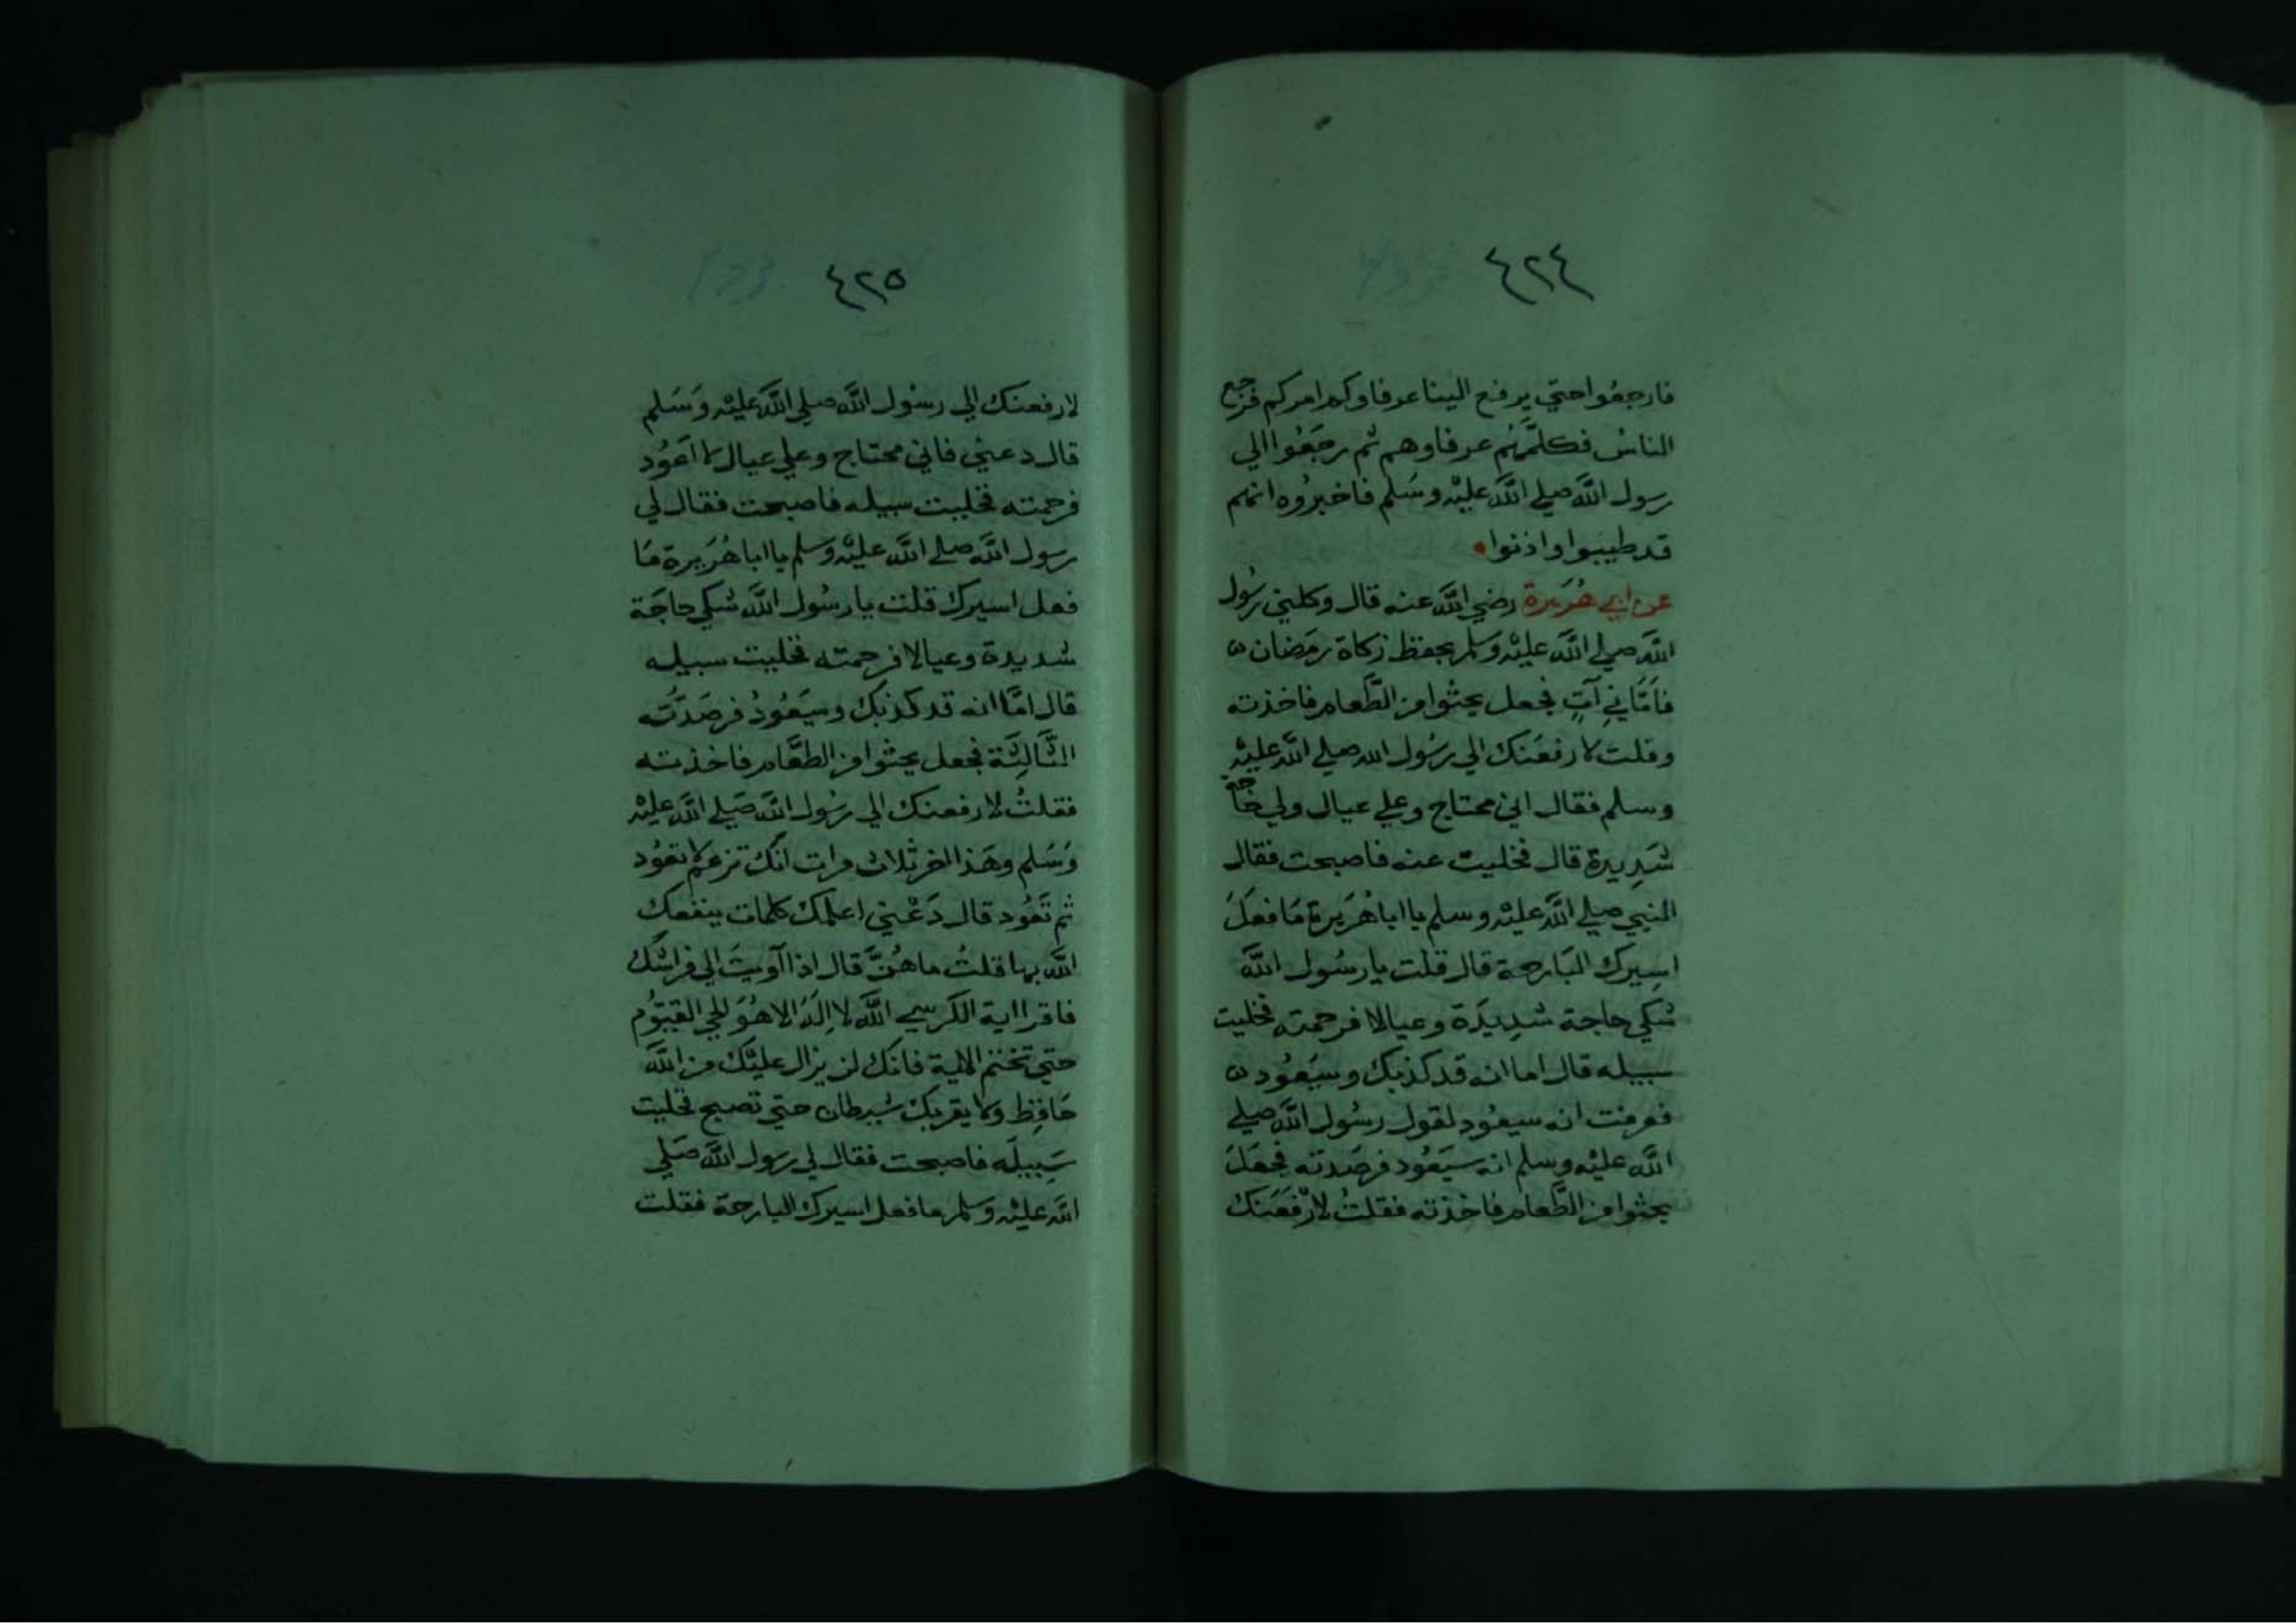 ٤٢٤
فارجعوا حتي يرفع الينا عرفاوكم امركم فرجع
الناسُ فكلمَهُم عرفاوهم ثم رجَعُوا الي
رسول اللَّه صلي اللَّه عليْه وسَلم فاخبرُوه انهم
قد طيبوا واذنوا
عن ابي هُرَيرة رضي اللَّه عنه قال وكلني رسُول
اللَّه صلي اللَّه عليْه وسلم بحفظ زكاة رمَضان
فاَتَاني آتٍ فجعل يحثوا من الطَّعام فاخذته
وقلت لارفعَنك الي رسُول الله صلي اللَّه عليْه
وسلم فقال اني محتاج وعلي عيال ولي حَاجة
شَدِيدة قال فخليت عنه فاصبحت فقال
النبي صلي اللَّه عليْه وسلم يا ابا هُرَيرة مَا فعَلَ
اسِيرك البَارحة قال قلت يا رسُول اللَّه
شكي حاجة شدِيدَة وعيالا فرحمته فخليت
سبيله قال اما انه قد كذبك وسيَعُود
فعرفت انه سيعُود لقول رسُول اللَّه صلي
اللَّه عليْه وسلم انه سيَعُود فرصَدته فجعَلَ
يحثوا من الطَّعام فاخذته فقلتُ لارْفعَنك
٤٢٥
لارفعنك الي رسُول اللَّه صلي اللَّه عليْه وَسَلم
قال دعني فاني محتاج وعلي عيال لا اعَوُد
فرحمته فخليت سبيله فاصبحت فقال لي
رسول اللَّه صلي اللَّه عليْه وسلم يا ابا هُرَيرة مَا
فعل اسيرك قلت يا رسُول اللَّه شكي حاجَة
شديدة وعيالا فرحمته فخليت سبيله
قال امَّا انه قد كذبك وسيَعُودُ فرصَدتُه
الثَّالِثَة فجعل يحثوا من الطعَّام فاخذته
فقلتُ لارفعنك الي رسُول اللَّه صَلي اللَّه عليْه
وَسَلم وهَذا اخر ثلاث مرات انك تزعم لا تعوُد
ثم تَعَوُد قال دَعْني اعلمك كلمات ينفعك
اللَّه بها قلتُ ما هُنَّ قال اذا آويتَ الي فراشك
فاقرا اية الكَرسي اللَّه لا اِلَهَ الا هُوَ الحي القيوُّم
حتي تختم الاية فانك لن يزال عليْك من اللَّه
حَافِظ ولا يقربك شيطان حتي تصبح فخليت
سَبيلَه فاصبحت فقال لي رسول اللَّه صَلي
اللَّه عليْه وسلم ما فعل اسيرك البارحة فقلت